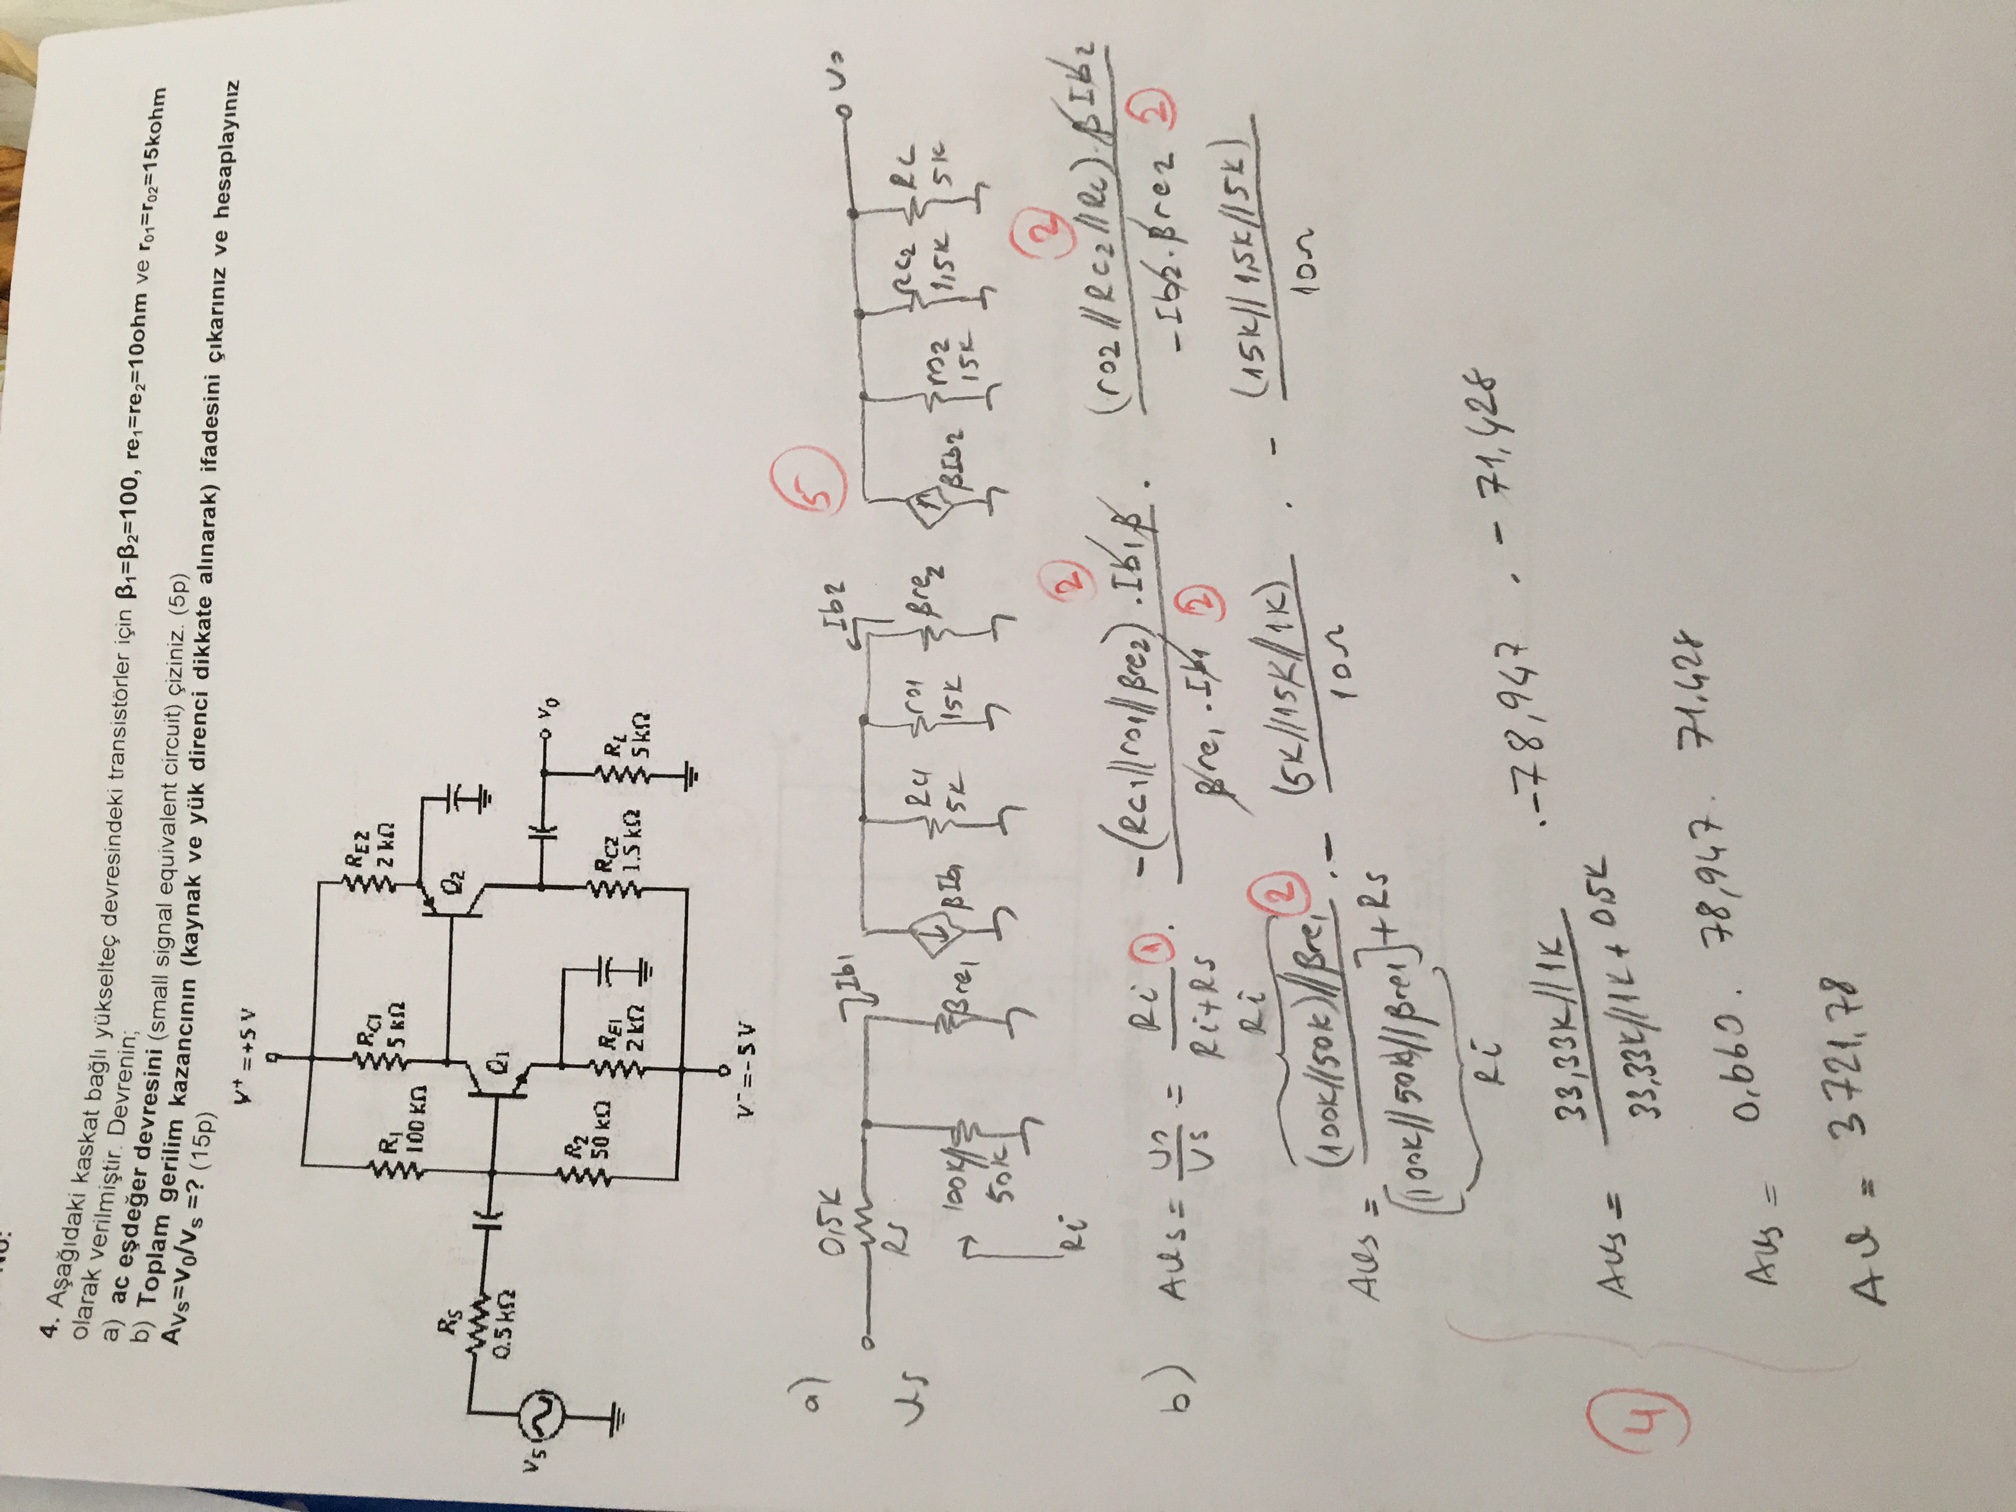 No:
4. Aşağıdaki kaskat bağlı yükselteç devresindeki transistörler için β1=β2=100, re1=re2=10ohm ve r01=r02=15kohm
olarak verilmiştir. Devrenin;
a) ac eşdeğer devresini (small signal equivalent circuit) çiziniz. (5p)
b) Toplam gerilim kazancının (kaynak ve yük direnci dikkate alınarak) ifadesini çıkarınız ve hesaplayınız
Avs=vo/vs =? (15p)
V+ = +5 V
R1
100 kΩ
RC1
5 kΩ
RE2
2 kΩ
RS
0.5 kΩ
vs
Q1
Q2
R2
50 kΩ
RE1
2 kΩ
RC2
1.5 kΩ
vo
RL
5 kΩ
V- = -5 V
a)
5
Vs
0,5K
Rs
Ri
100K//
50K
Ib1
βre1
βIb1
Rc1
5K
ro1
15K
Ib2
βre2
βIb2
ro2
15K
Rc2
1,5K
RL
5K
Vo
b) Avs = Vo/Vs = Ri/(Ri+Rs) 1 . -(Rc1//ro1//βre2).Ib1.β 2 / βre1.Ib1 2 . (ro2//Rc2//RL).βIb2 2 / -Ib2.βre2 2
Avs = (100K//50K)//βre1 2 / [(100K//50K//βre1]+Rs . - (5K//15K//1K) / 10Ω . - (15K//1,5K//5K) / 10Ω
Ri
Ri
Avs = 33,33K//1K / 33,33K//1K + 0,5K . -78,947 . -71,428
4
Avs = 0,660 . 78,947 . 71,428
Av = 3721,78